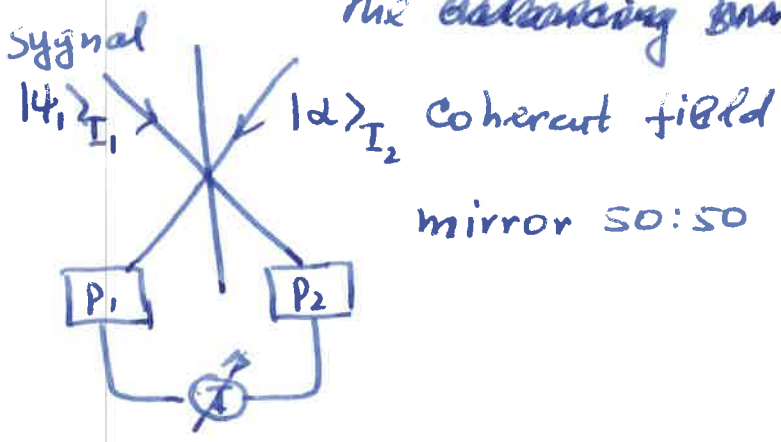 the
sygnal
|ψ₁⟩_I₁ |α⟩_I₂ coherent field
mirror 50:50
P₁ P₂
I